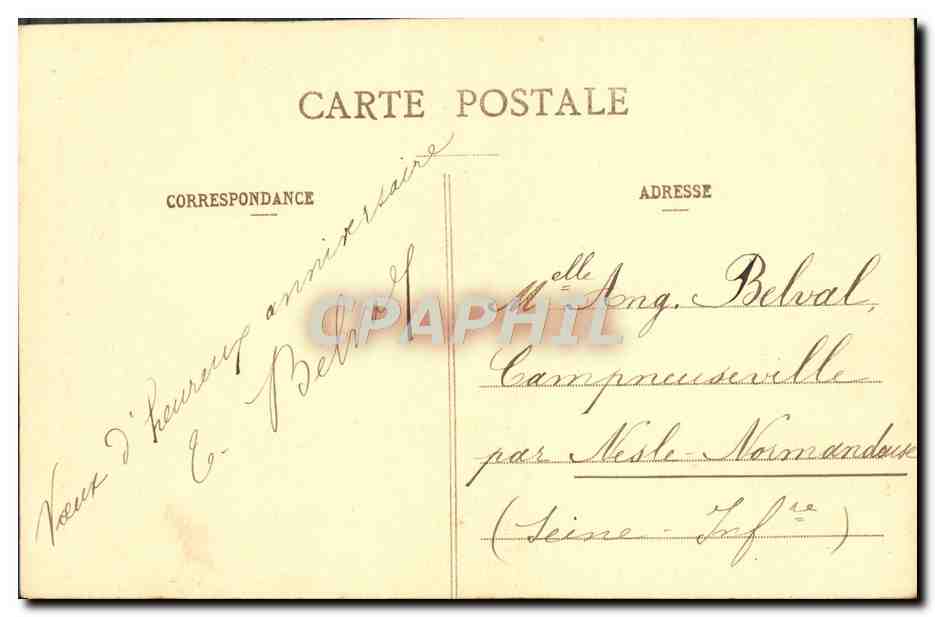 CARTE POSTALE
CORRESPONDANCE
Vœux d'heureux anniversaire
E. Belval
ADRESSE
Melle Ang. Belval,
Campneuseville
par Nesle-Normandeuse
(Seine-Infre)
CPAPHIL